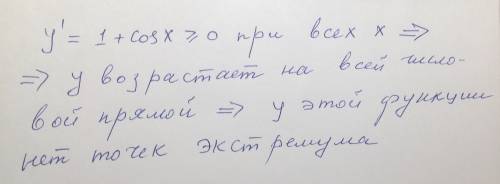 y' = 1 + cosx ≥ 0 при всех x ⇒
⇒ y возрастает на всей число-
вой прямой ⇒ у этой функции
нет точек экстремума